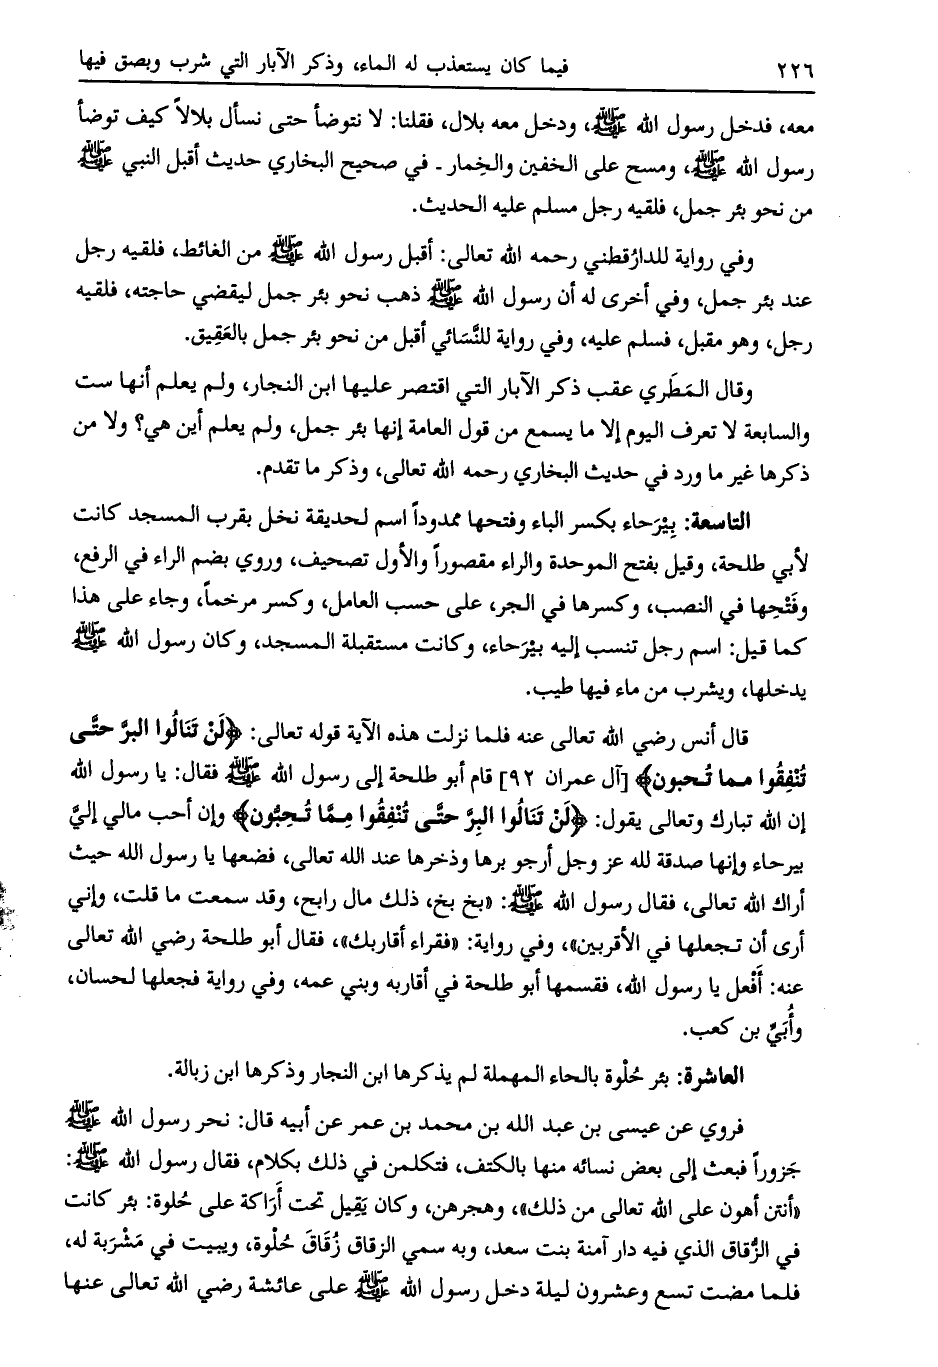 ٢٢٦ فيما كان يستعذب له الماء، وذكر الآبار التي شرب وبصق فيها
معه، فدخل رسول الله ﷺ، ودخل معه بلال، فقلنا: لا نتوضأ حتى نسأل بلالاً كيف توضأ
رسول الله ﷺ، ومسح على الخفين والخِمار ـ في صحيح البخاري حديث أقبل النبي ﷺ
من نحو بئر جمل، فلقيه رجل مسلم عليه الحديث.
وفي رواية للدارُقطني رحمه الله تعالى: أقبل رسول الله ﷺ من الغائط، فلقيه رجل
عند بئر جمل، وفي أخرى له أن رسول الله ﷺ ذهب نحو بئر جمل ليقضي حاجته، فلقيه
رجل، وهو مقبل، فسلم عليه، وفي رواية للنَّسَائي أقبل من نحو بئر جمل بالعَقِيق.
وقال المَطَري عقب ذكر الآبار التي اقتصر عليها ابن النجار، ولم يعلم أنها ست
والسابعة لا تعرف اليوم إلا ما يسمع من قول العامة إنها بئر جمل، ولم يعلم أين هي؟ ولا من
ذكرها غير ما ورد في حديث البخاري رحمه الله تعالى، وذكر ما تقدم.
التاسعة: بِيْرَحاء بكسر الباء وفتحها ممدوداً اسم لحديقة نخل بقرب المسجد كانت
لأبي طلحة، وقيل بفتح الموحدة والراء مقصوراً والأول تصحيف، وروي بضم الراء في الرفع،
وفَتْحِها في النصب، وكسرها في الجر، على حسب العامل، وكسر مرخماً، وجاء على هذا
كما قيل: اسم رجل تنسب إليه بيْرَحاء، وكانت مستقبلة المسجد، وكان رسول الله ﷺ
يدخلها، ويشرب من ماء فيها طيب.
قال أنس رضي الله تعالى عنه فلما نزلت هذه الآية قوله تعالى: ﴿لَنْ تَنَالُوا البرَّ حتَّى
تُنْفِقُوا مما تُحبون﴾ [آل عمران ٩٢] قام أبو طلحة إلى رسول الله ﷺ فقال: يا رسول الله
إن الله تبارك وتعالى يقول: ﴿لَنْ تَنَالُوا البِرَّ حتَّى تُنْفِقُوا مِمَّا تُحِبُّون﴾ وإن أحب مالي إليَّ
بيرحاء وإنها صدقة لله عز وجل أرجو برها وذخرها عند الله تعالى، فضعها يا رسول الله حيث
أراك الله تعالى، فقال رسول الله ﷺ: «بخ بخ، ذلك مال رابح، وقد سمعت ما قلت، وإني
أرى أن تجعلها في الأقربين»، وفي رواية: «فقراء أقاربك»، فقال أبو طلحة رضي الله تعالى
عنه: أَفْعل يا رسول الله، فقسمها أبو طلحة في أقاربه وبني عمه، وفي رواية فجعلها لحسان،
وأُبَيِّ بن كعب.
العاشرة: بئر حُلْوة بالحاء المهملة لم يذكرها ابن النجار وذكرها ابن زبالة.
فروي عن عيسى بن عبد الله بن محمد بن عمر عن أبيه قال: نحر رسول الله ﷺ
جَزوراً فبعث إلى بعض نسائه منها بالكتف، فتكلمن في ذلك بكلام، فقال رسول الله ﷺ:
«أنتن أهون على الله تعالى من ذلك»، وهجرهن، وكان يَقِيل تحت أَرَاكة على حُلوة: بئر كانت
في الزُّقاق الذي فيه دار آمنة بنت سعد، وبه سمي الزقاق زُقَاقَ حُلْوة، ويبيت في مَشْرَبة له،
فلما مضت تسع وعشرون ليلة دخل رسول الله ﷺ على عائشة رضي الله تعالى عنها